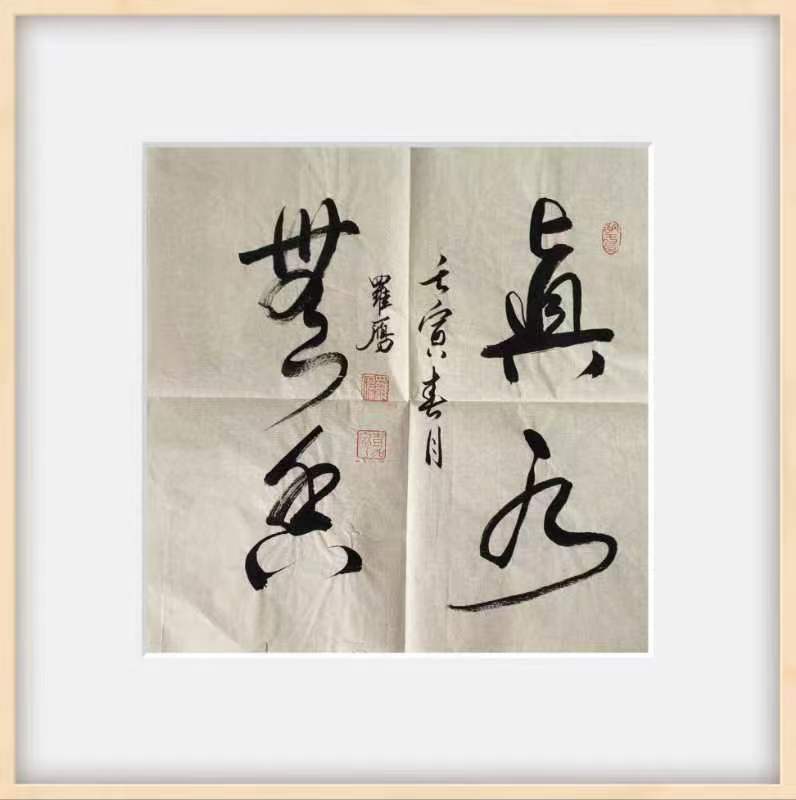 真水
無香
壬寅春月
羅鴈